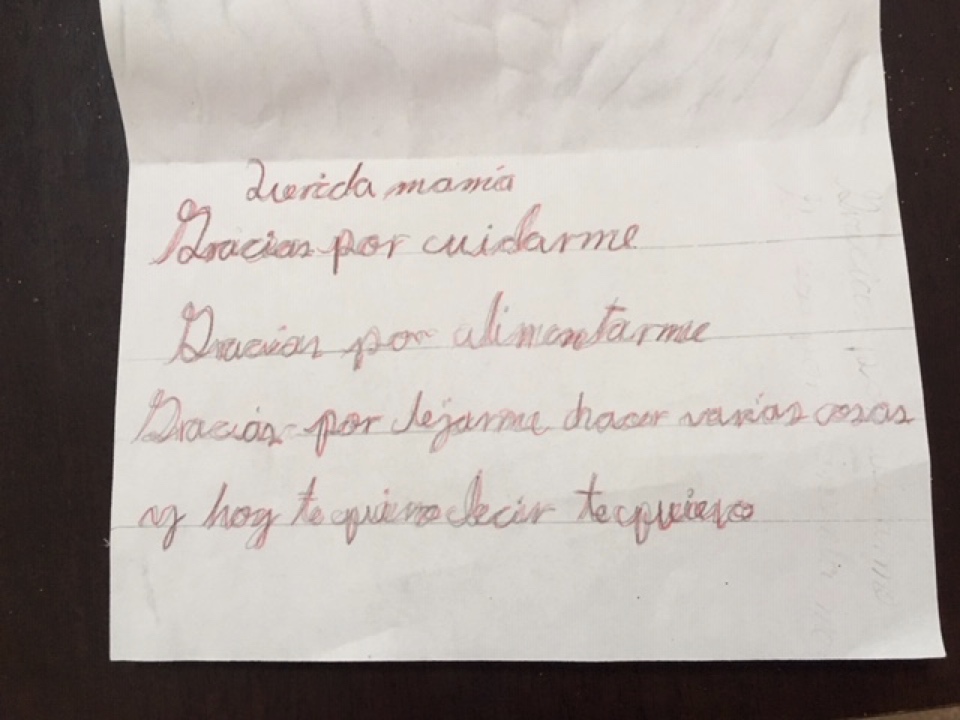 Querida mamá
Gracias por cuidarme
Gracias por alimentarme
Gracias por dejarme hacer varias cosas
y hoy te quiero decir te quiero